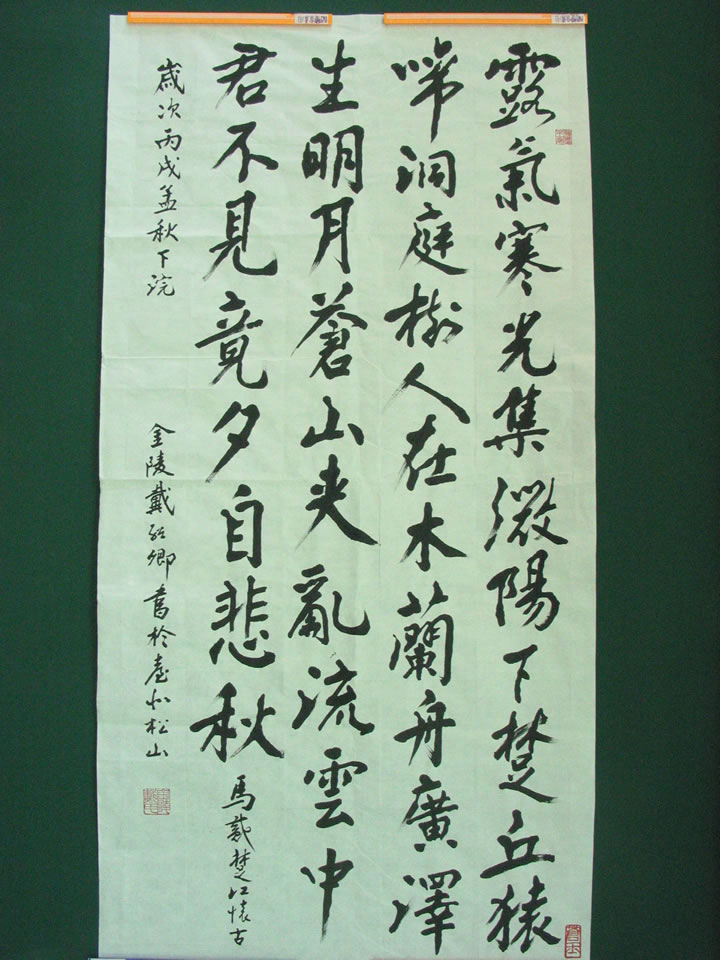 露氣寒光集微陽下楚丘猿
啼洞庭樹人在木蘭舟廣澤
生明月蒼山夾亂流雲中
君不見竟夕自悲秋
馬戴楚江懷古
歲次丙戌孟秋下浣
金陵戴卿書於臺北松山